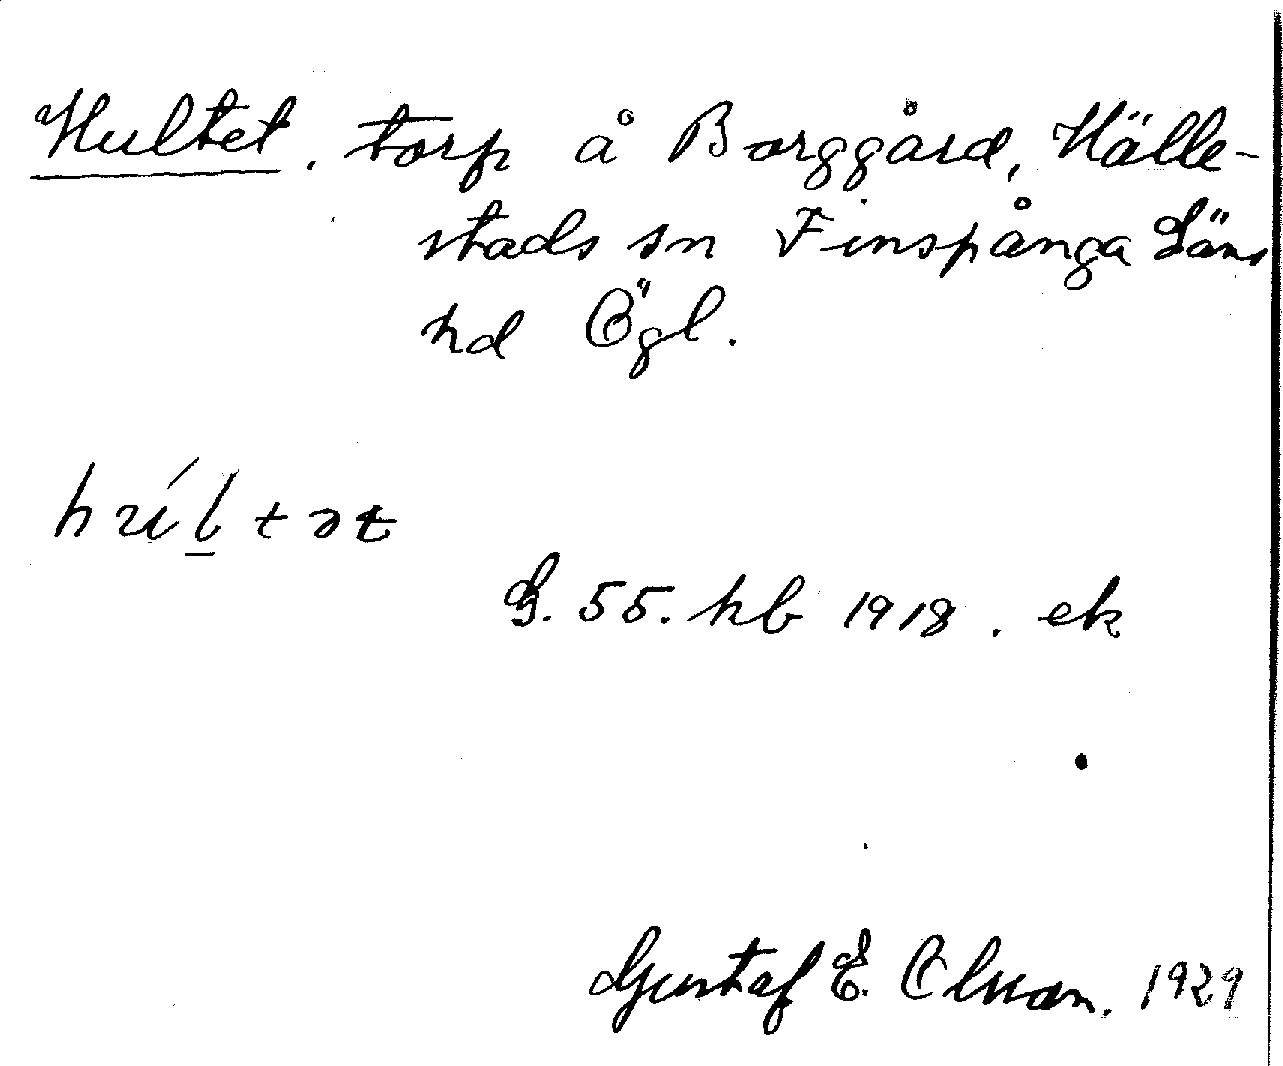 Hultet. torp å Borggård, Hälle-
stads sn Finspånga Läns
hd Ögl.
húltət
G. 55. hb 1918. ek
Gustaf E. Olsson. 1929